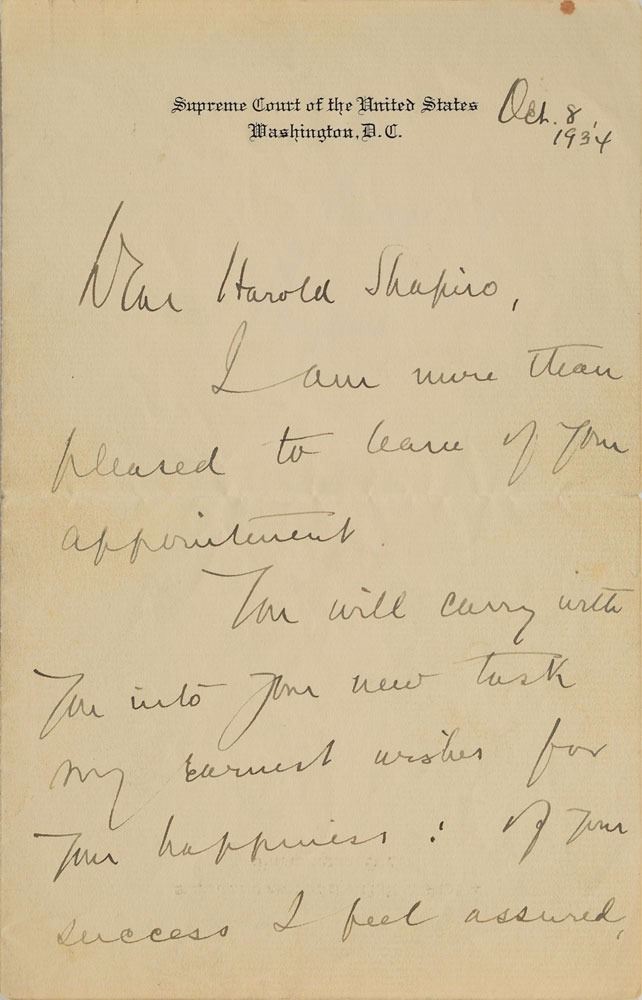 Supreme Court of the United States
Washington, D.C.
Oct. 8,
1934
Dear Harold Shapiro,
I am more than
pleased to learn of your
appointment.
You will carry with
you into your new task
my earnest wishes for
your happiness: of your
success I feel assured,